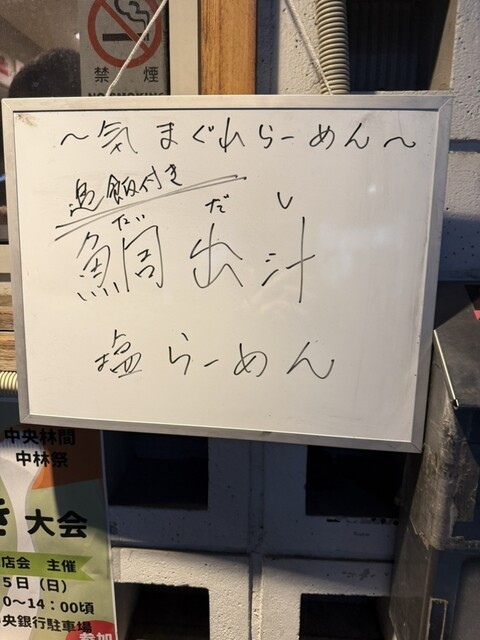 禁煙
NO SMOKING
～気まぐれらーめん～
追飯付き
だい だ し
鯛出汁
塩らーめん
中央林間
中林祭
き大会
店会 主催
5日(日)
0～14:00頃
央銀行駐車場
参加